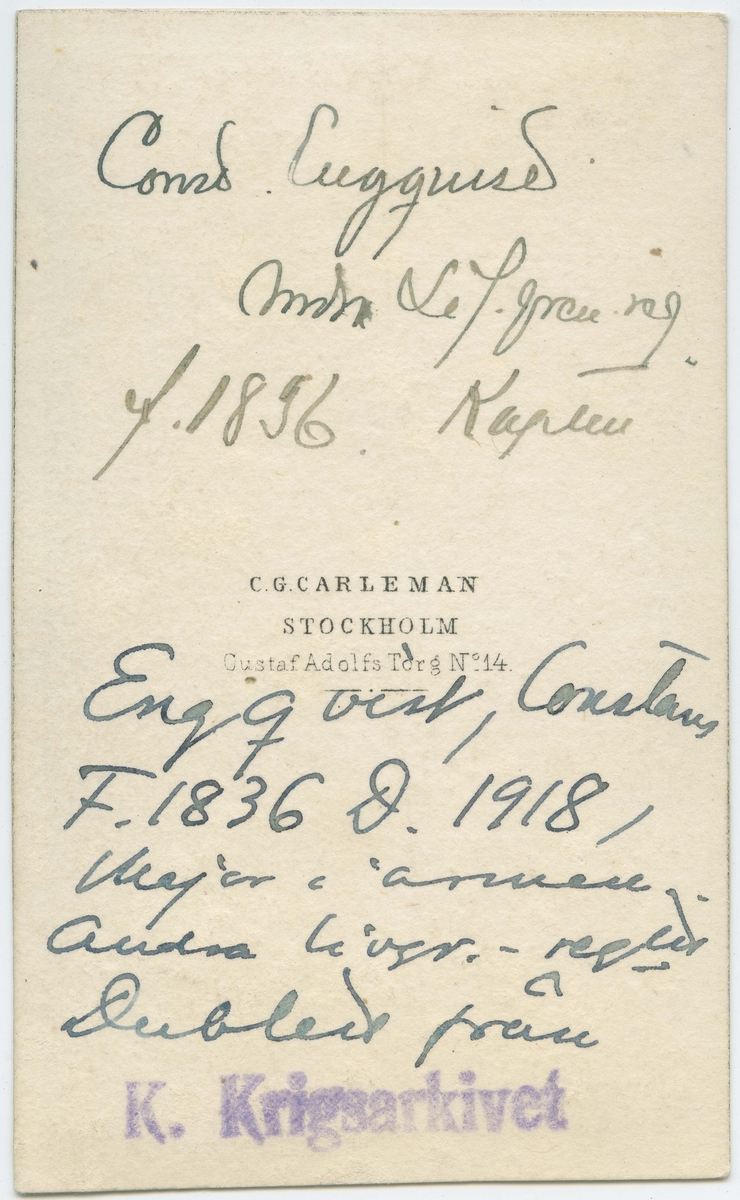 Const. Engquist
Lif. gren. reg.
f. 1836. Kapten
C.G. CARLEMAN
STOCKHOLM
Gustaf Adolfs Torg No. 14.
Engqvist, Constans
F. 1836 D. 1918,
Major i armén.
Andra livgr.-regtet
Dublett från
K. Krigsarkivet